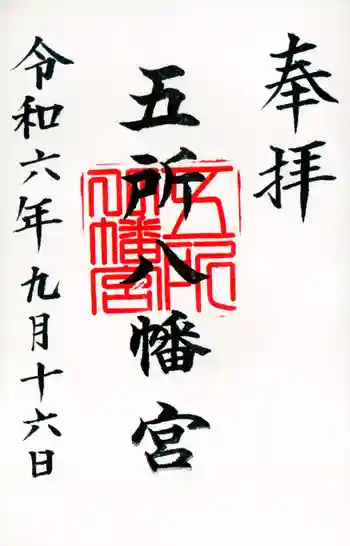 奉拝
五所八幡宮
五所八幡宮
令和六年九月十六日